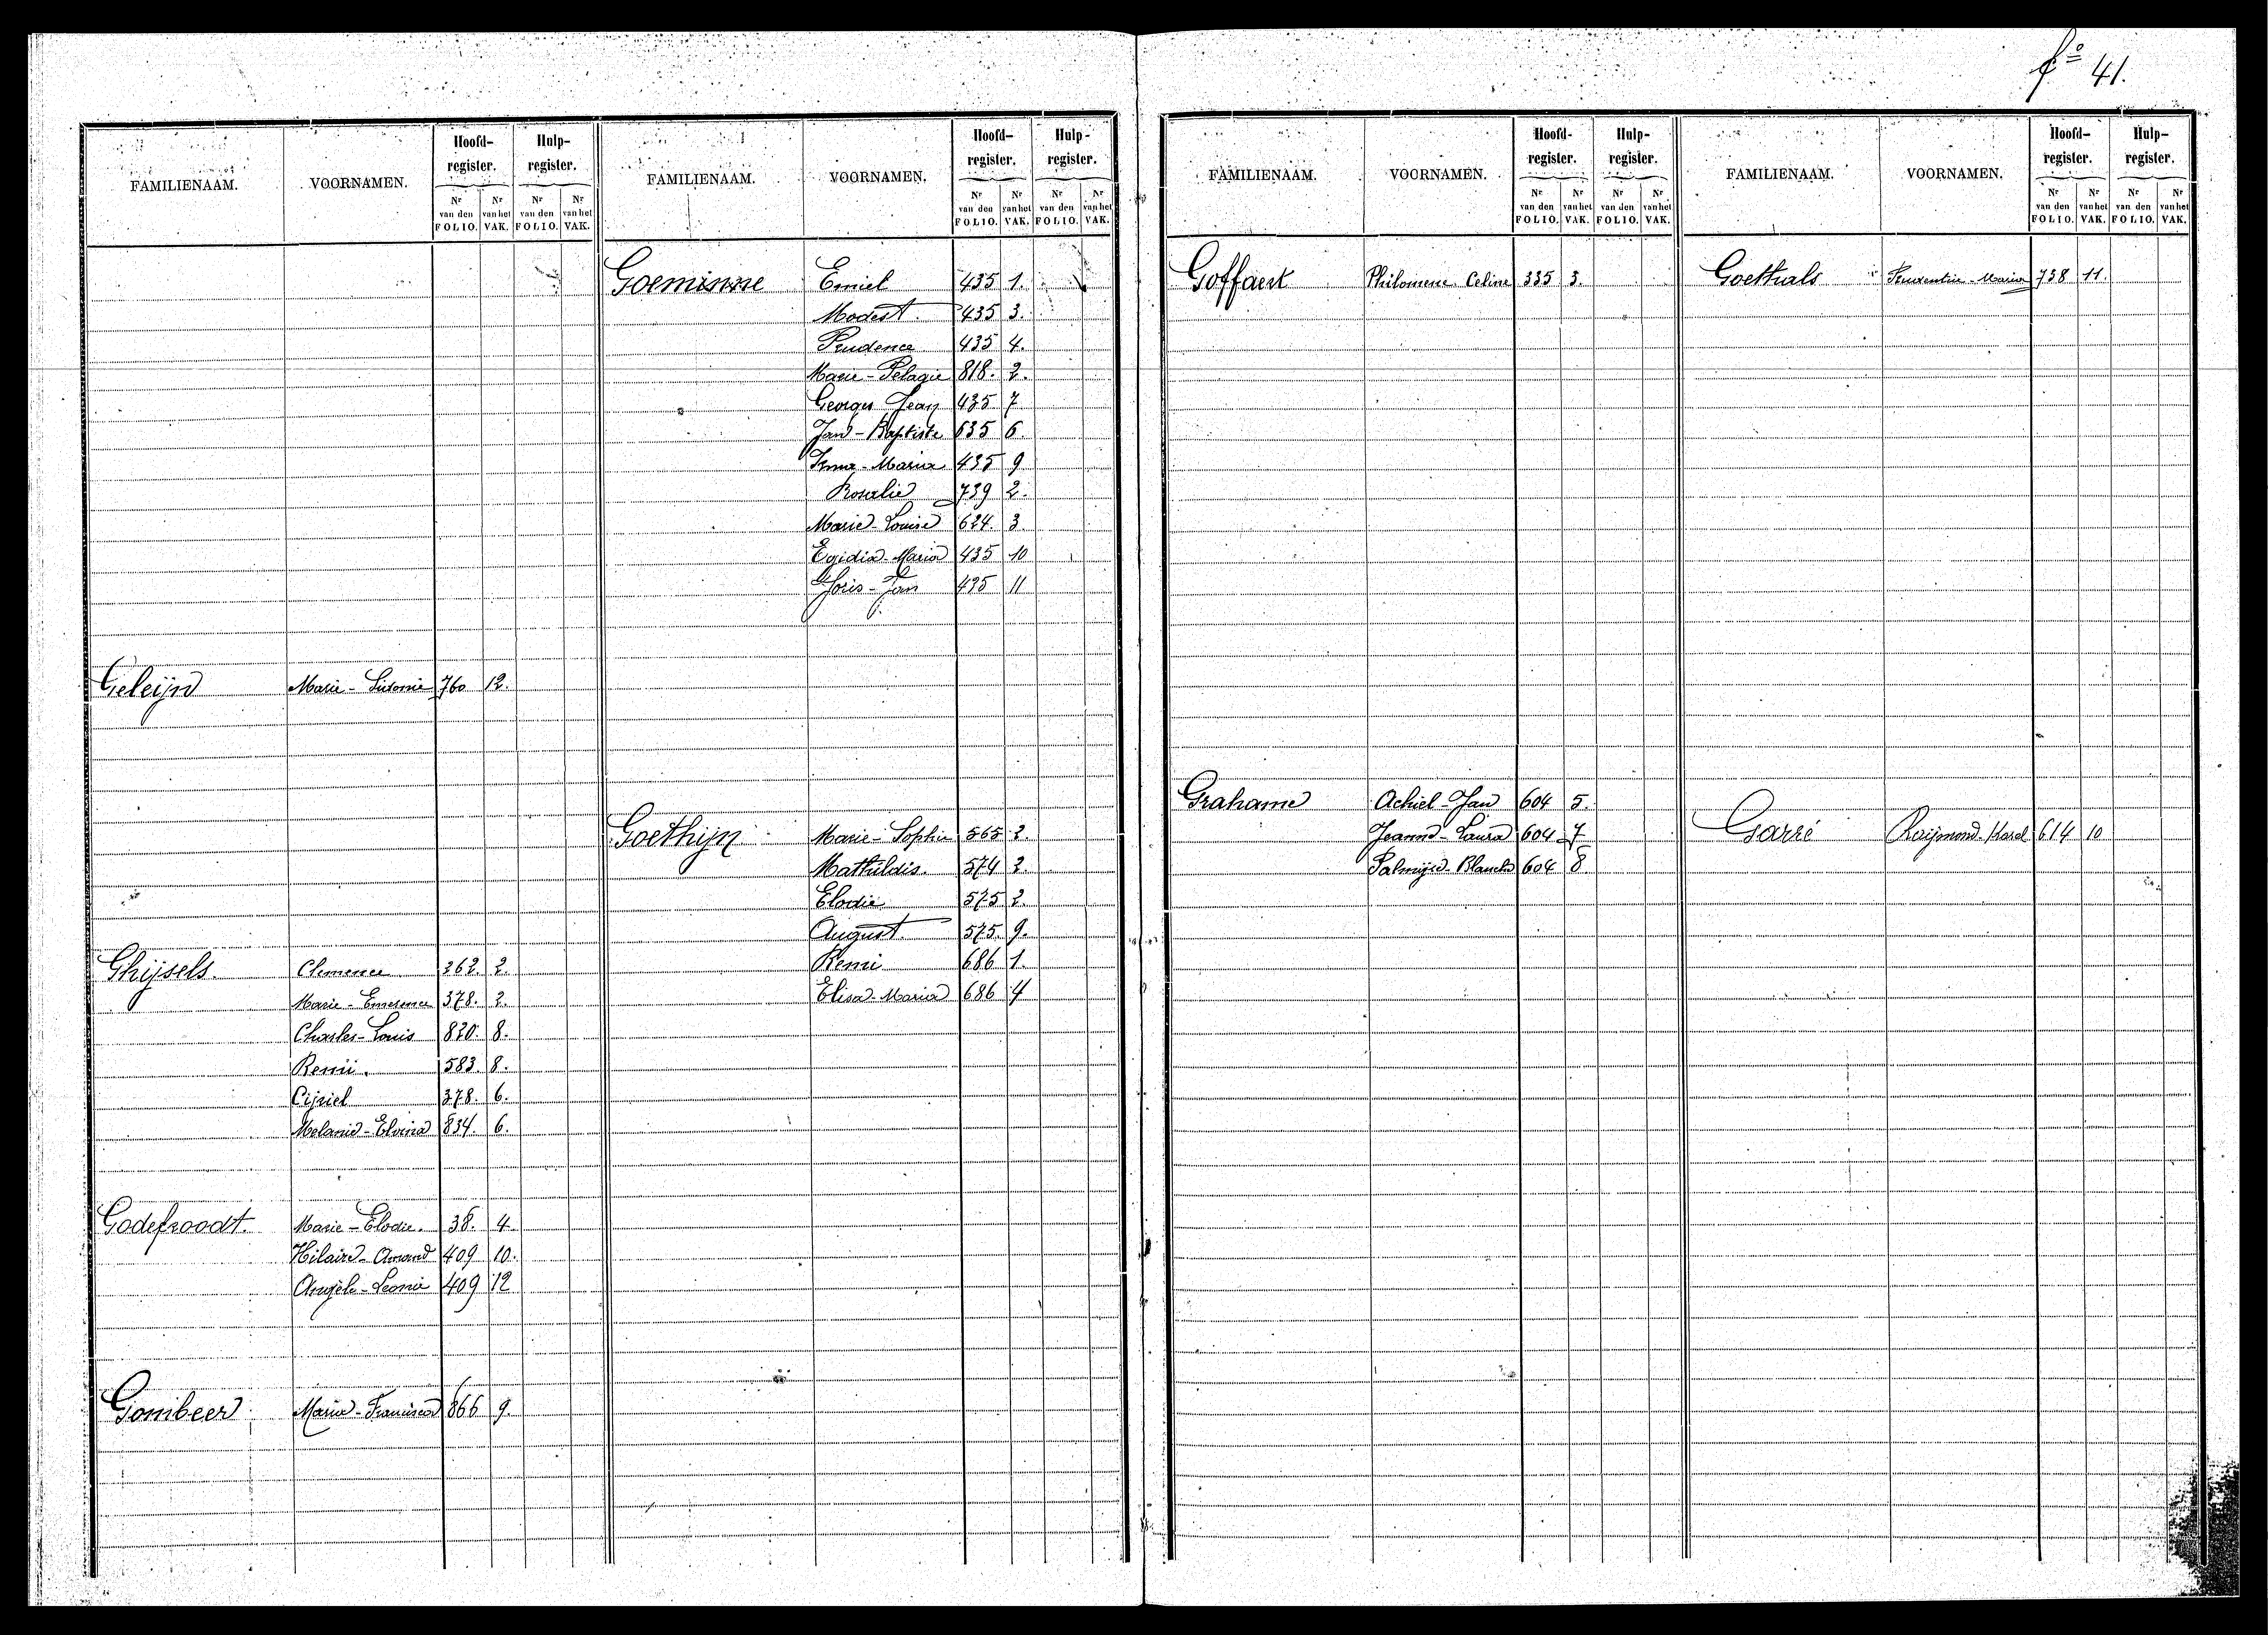 fº 41.
FAMILIENAAM. VOORNAMEN. Hoofd-register. Hulp-register.
Nr van den FOLIO. Nr van het VAK. Nr van den FOLIO. Nr van het VAK.
Geleijn Marie - Sidonie 760 12.
Ghijsels. Clemence 262. 2.
Marie - Emerence 378. 2.
Charles - Louis 820. 8.
Remi. 583. 8.
Cijriel 378. 6.
Melanie - Elvina 834. 6.
Godefroodt. Marie - Elodie. 38. 4.
Hilaire - Amand 409 10.
Angèle - Leonie 409 12
Gombeer Maria - Francisca 866 9.
FAMILIENAAM. VOORNAMEN. Hoofd-register. Hulp-register.
Nr van den FOLIO. Nr van het VAK. Nr van den FOLIO. Nr van het VAK.
Goeminne Emiel 435 1.
Modest. 435 3.
Prudence 435 4.
Marie - Pelagie 818. 2.
Georges Jean 435 7
Jan - Baptiste 635 6.
Irma - Maria 435 9
Rosalie 739 2.
Marie - Louise 624. 3.
Egidia - Maria 435 10
Joris - Jan 435 11
Goethijn Marie - Sophie 565 2.
Mathildis. 574 2.
Elodie 575 2.
August. 575. 9.
Remi 686 1.
Elisa - Maria 686 4
FAMILIENAAM. VOORNAMEN. Hoofd-register. Hulp-register.
Nr van den FOLIO. Nr van het VAK. Nr van den FOLIO. Nr van het VAK.
Goffaert Philomene Celine 335 3.
Grahame Achiel - Jan 604 5.
Jeanne - Laura 604 7
Palmijre - Blanche 604 8
FAMILIENAAM. VOORNAMEN. Hoofd-register. Hulp-register.
Nr van den FOLIO. Nr van het VAK. Nr van den FOLIO. Nr van het VAK.
Goethals Prudentia - Maria 738 11.
Garré Raijmond - Karel 614 10